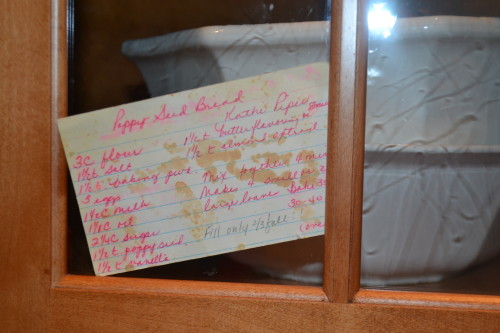 Poppy Seed Bread
Kathi
3 C flour
1½ t salt
1½ t baking pwd
3 eggs
1½ C milk
1½ C oil
2¼ C sugar
1½ t poppy seed
1½ t vanilla
1½ t butter flavoring
1½ t almond extract
Mix together
Makes 4 small or 2
large loaves. Bake
30-40
Fill only 2/3 full